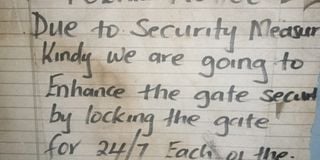 Due to Security Measur
Kindy we are going to
Enhance the gate securt
by locking the gate
for 24/7 Each of the